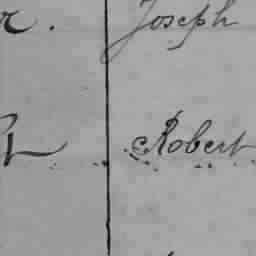 r. Joseph
Robert